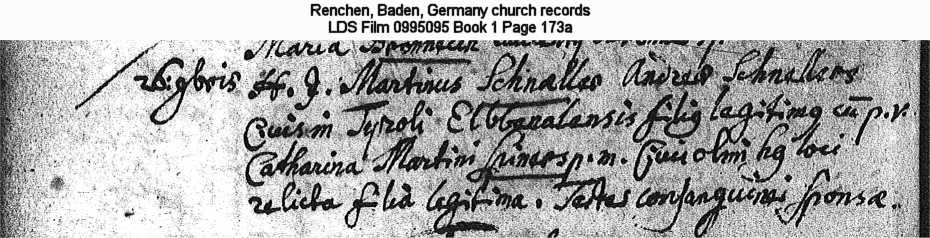 Renchen, Baden, Germany church records
LDS Film 0995095 Book 1 Page 173a
Maria
26. 9bris H. J. Martinus Schneller Andreæ Schnellers
Civis in Tyroli Elbbenalensis filig legitimg cū p. v.
Catharina Martini p. m. Civis olim hg loci
relicta filia legitima. Testes consanguinei sponsæ.